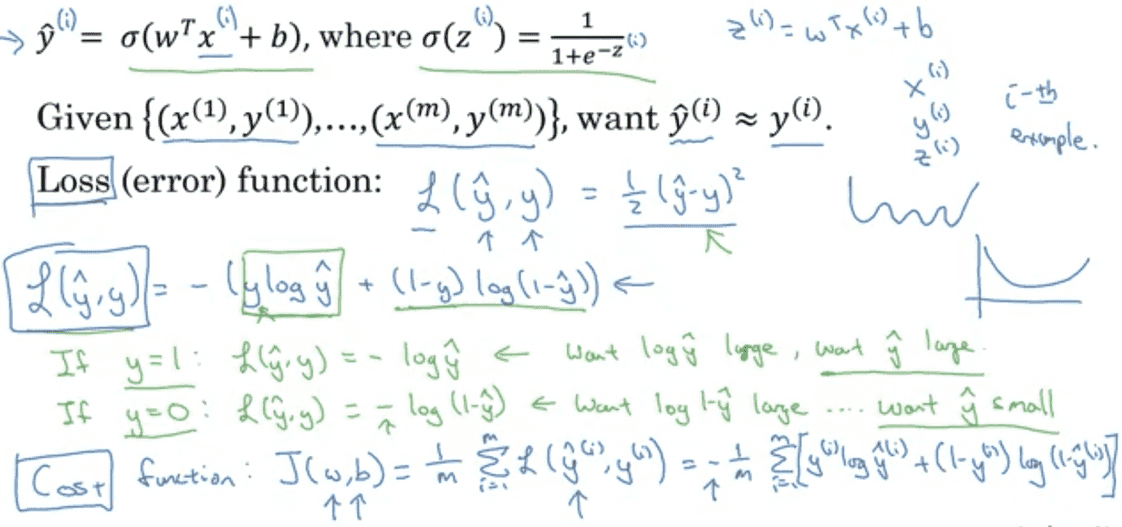 → ŷ⁽ⁱ⁾ = σ(wᵀx⁽ⁱ⁾ + b), where σ(z⁽ⁱ⁾) = 1/(1+e^(-z⁽ⁱ⁾)) z⁽ⁱ⁾ = wᵀx⁽ⁱ⁾ + b
Given {(x⁽¹⁾, y⁽¹⁾),…,(x⁽ᵐ⁾, y⁽ᵐ⁾)}, want ŷ⁽ⁱ⁾ ≈ y⁽ⁱ⁾.
x⁽ⁱ⁾
y⁽ⁱ⁾
z⁽ⁱ⁾
i-th
example.
Loss (error) function: L(ŷ, y) = ½(ŷ-y)²
L(ŷ, y) = - (y log ŷ + (1-y) log(1-ŷ)) ←
If y=1: L(ŷ, y) = - log ŷ ← Want log ŷ large, want ŷ large.
If y=0: L(ŷ, y) = - log (1-ŷ) ← Want log 1-ŷ large .... want ŷ small
Cost function: J(w,b) = 1/m Σᵢ₌₁ᵐ L(ŷ⁽ⁱ⁾, y⁽ⁱ⁾) = - 1/m Σᵢ₌₁ᵐ [y⁽ⁱ⁾ log ŷ⁽ⁱ⁾ + (1-y⁽ⁱ⁾) log (1-ŷ⁽ⁱ⁾)]